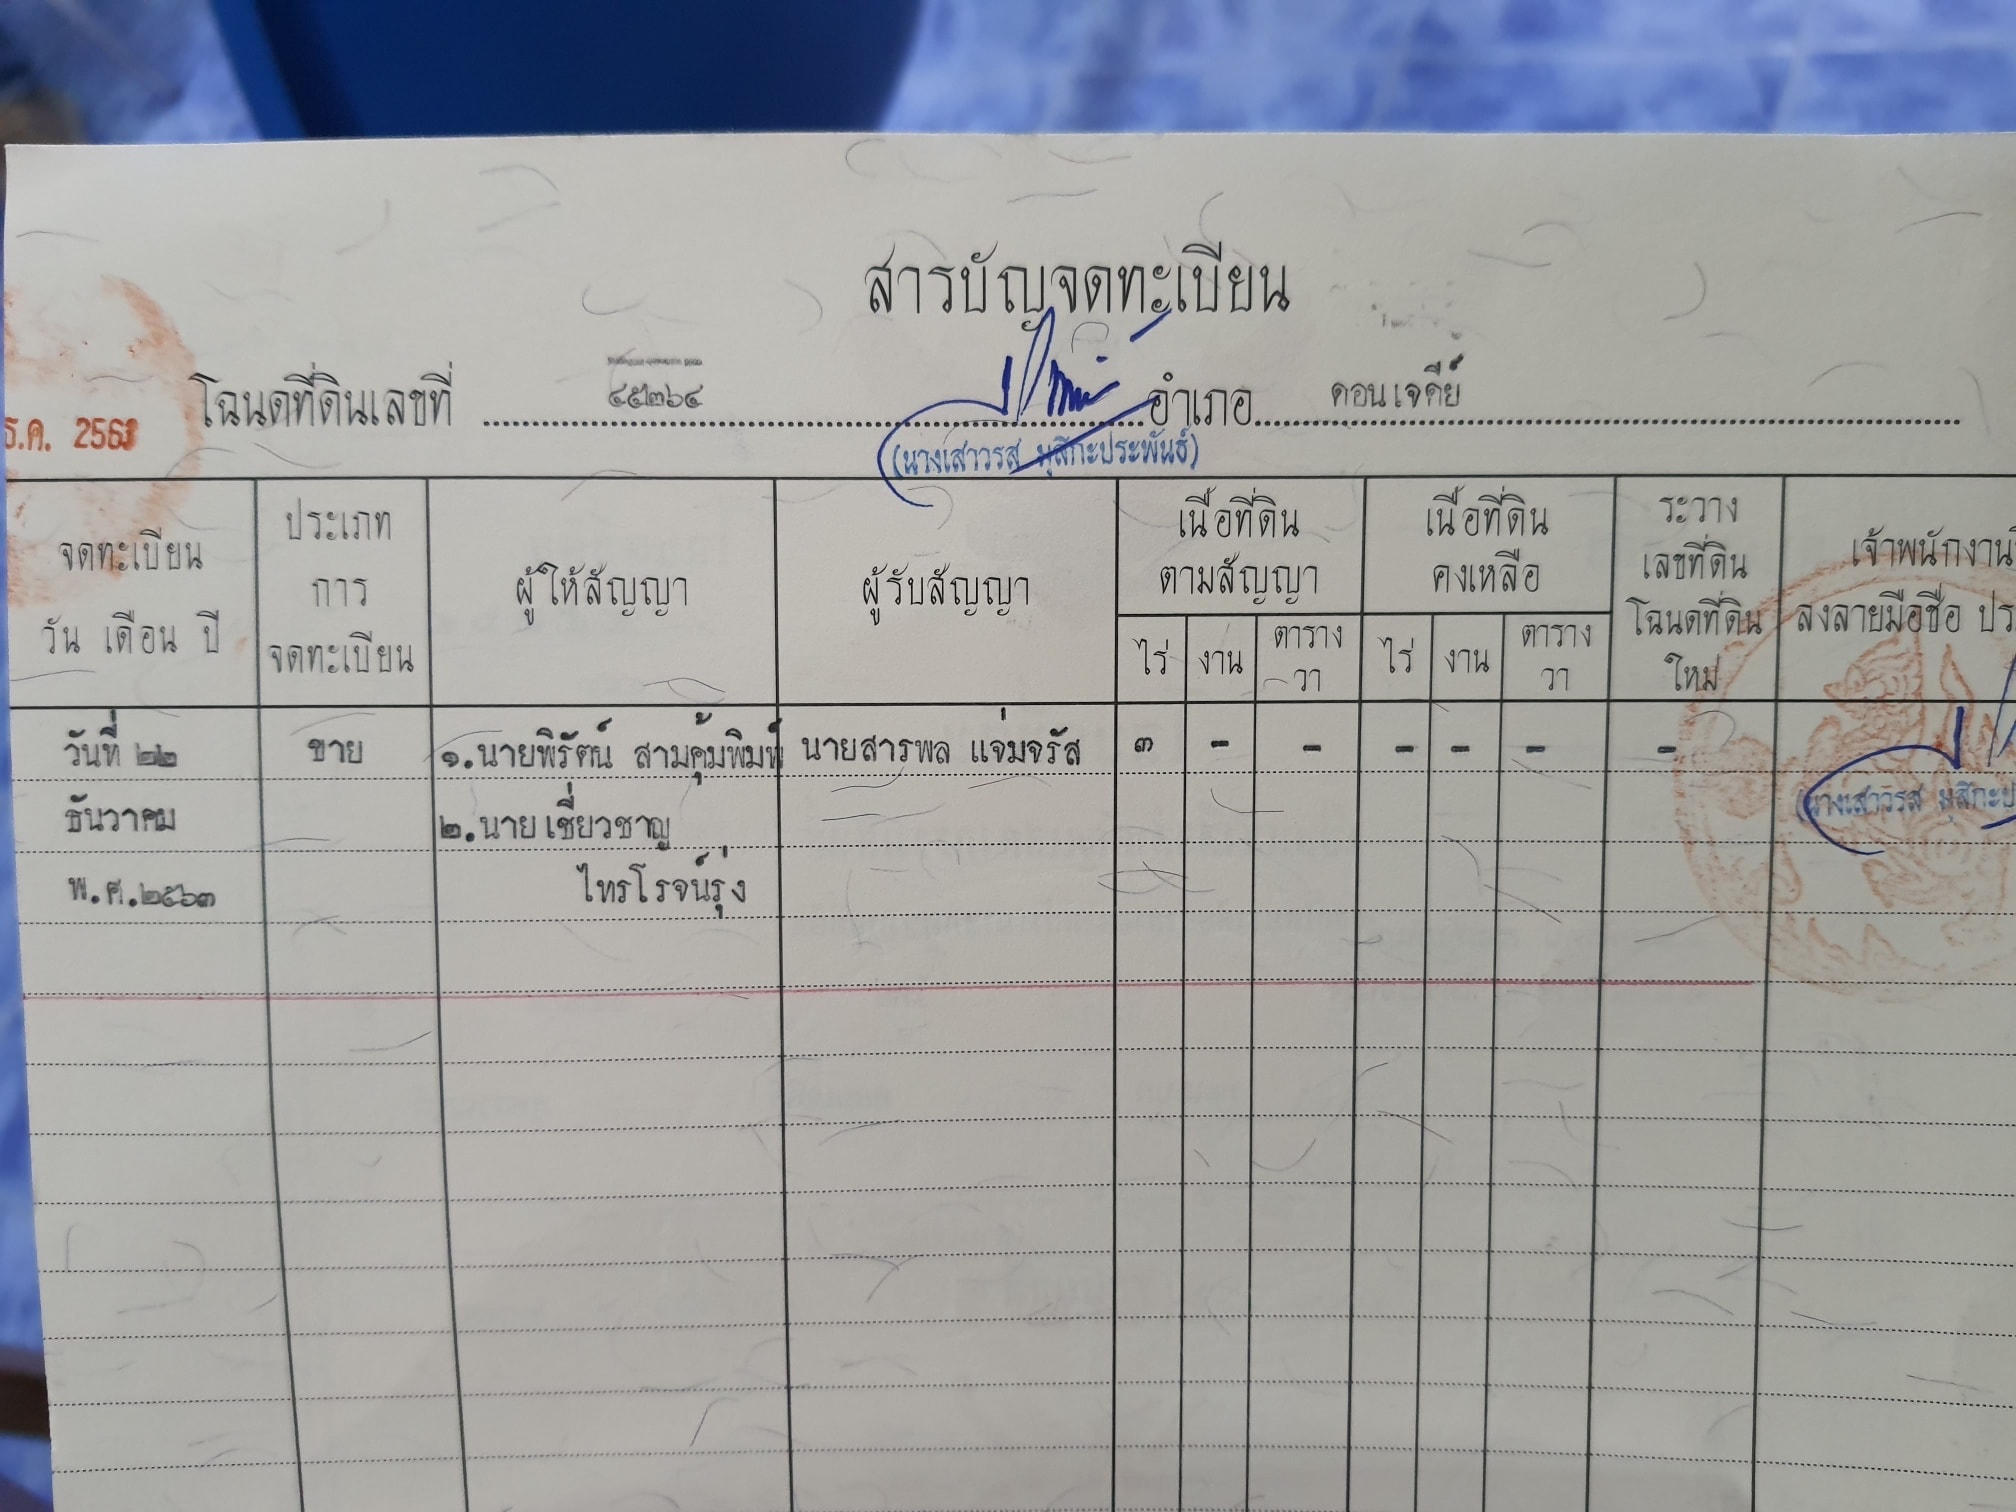 สารบัญจดทะเบียน
โฉนดที่ดินเลขที่ ๔๕๒๖๔ อำเภอ ดอนเจดีย์
ธ.ค. 2563
(นางเสาวรส มุสิกะประพันธ์)
จดทะเบียน วัน เดือน ปี
ประเภท การ จดทะเบียน
ผู้ให้สัญญา
ผู้รับสัญญา
เนื้อที่ดิน ตามสัญญา
ไร่ งาน ตาราง วา
เนื้อที่ดิน คงเหลือ
ไร่ งาน ตาราง วา
ระวาง เลขที่ดิน โฉนดที่ดิน ใหม่
เจ้าพนักงาน
ลงลายมือชื่อ
วันที่ ๒๒ ขาย ๑.นายพิรัตน์ สามคุ้มพิมพ์ นายสารพล แจ่มจรัส ๓ - - - - - -
ธันวาคม ๒.นายเชี่ยวชาญ
พ.ศ.๒๕๖๓ ไทรโรจน์รุ่ง
(นางเสาวรส มุสิกะป